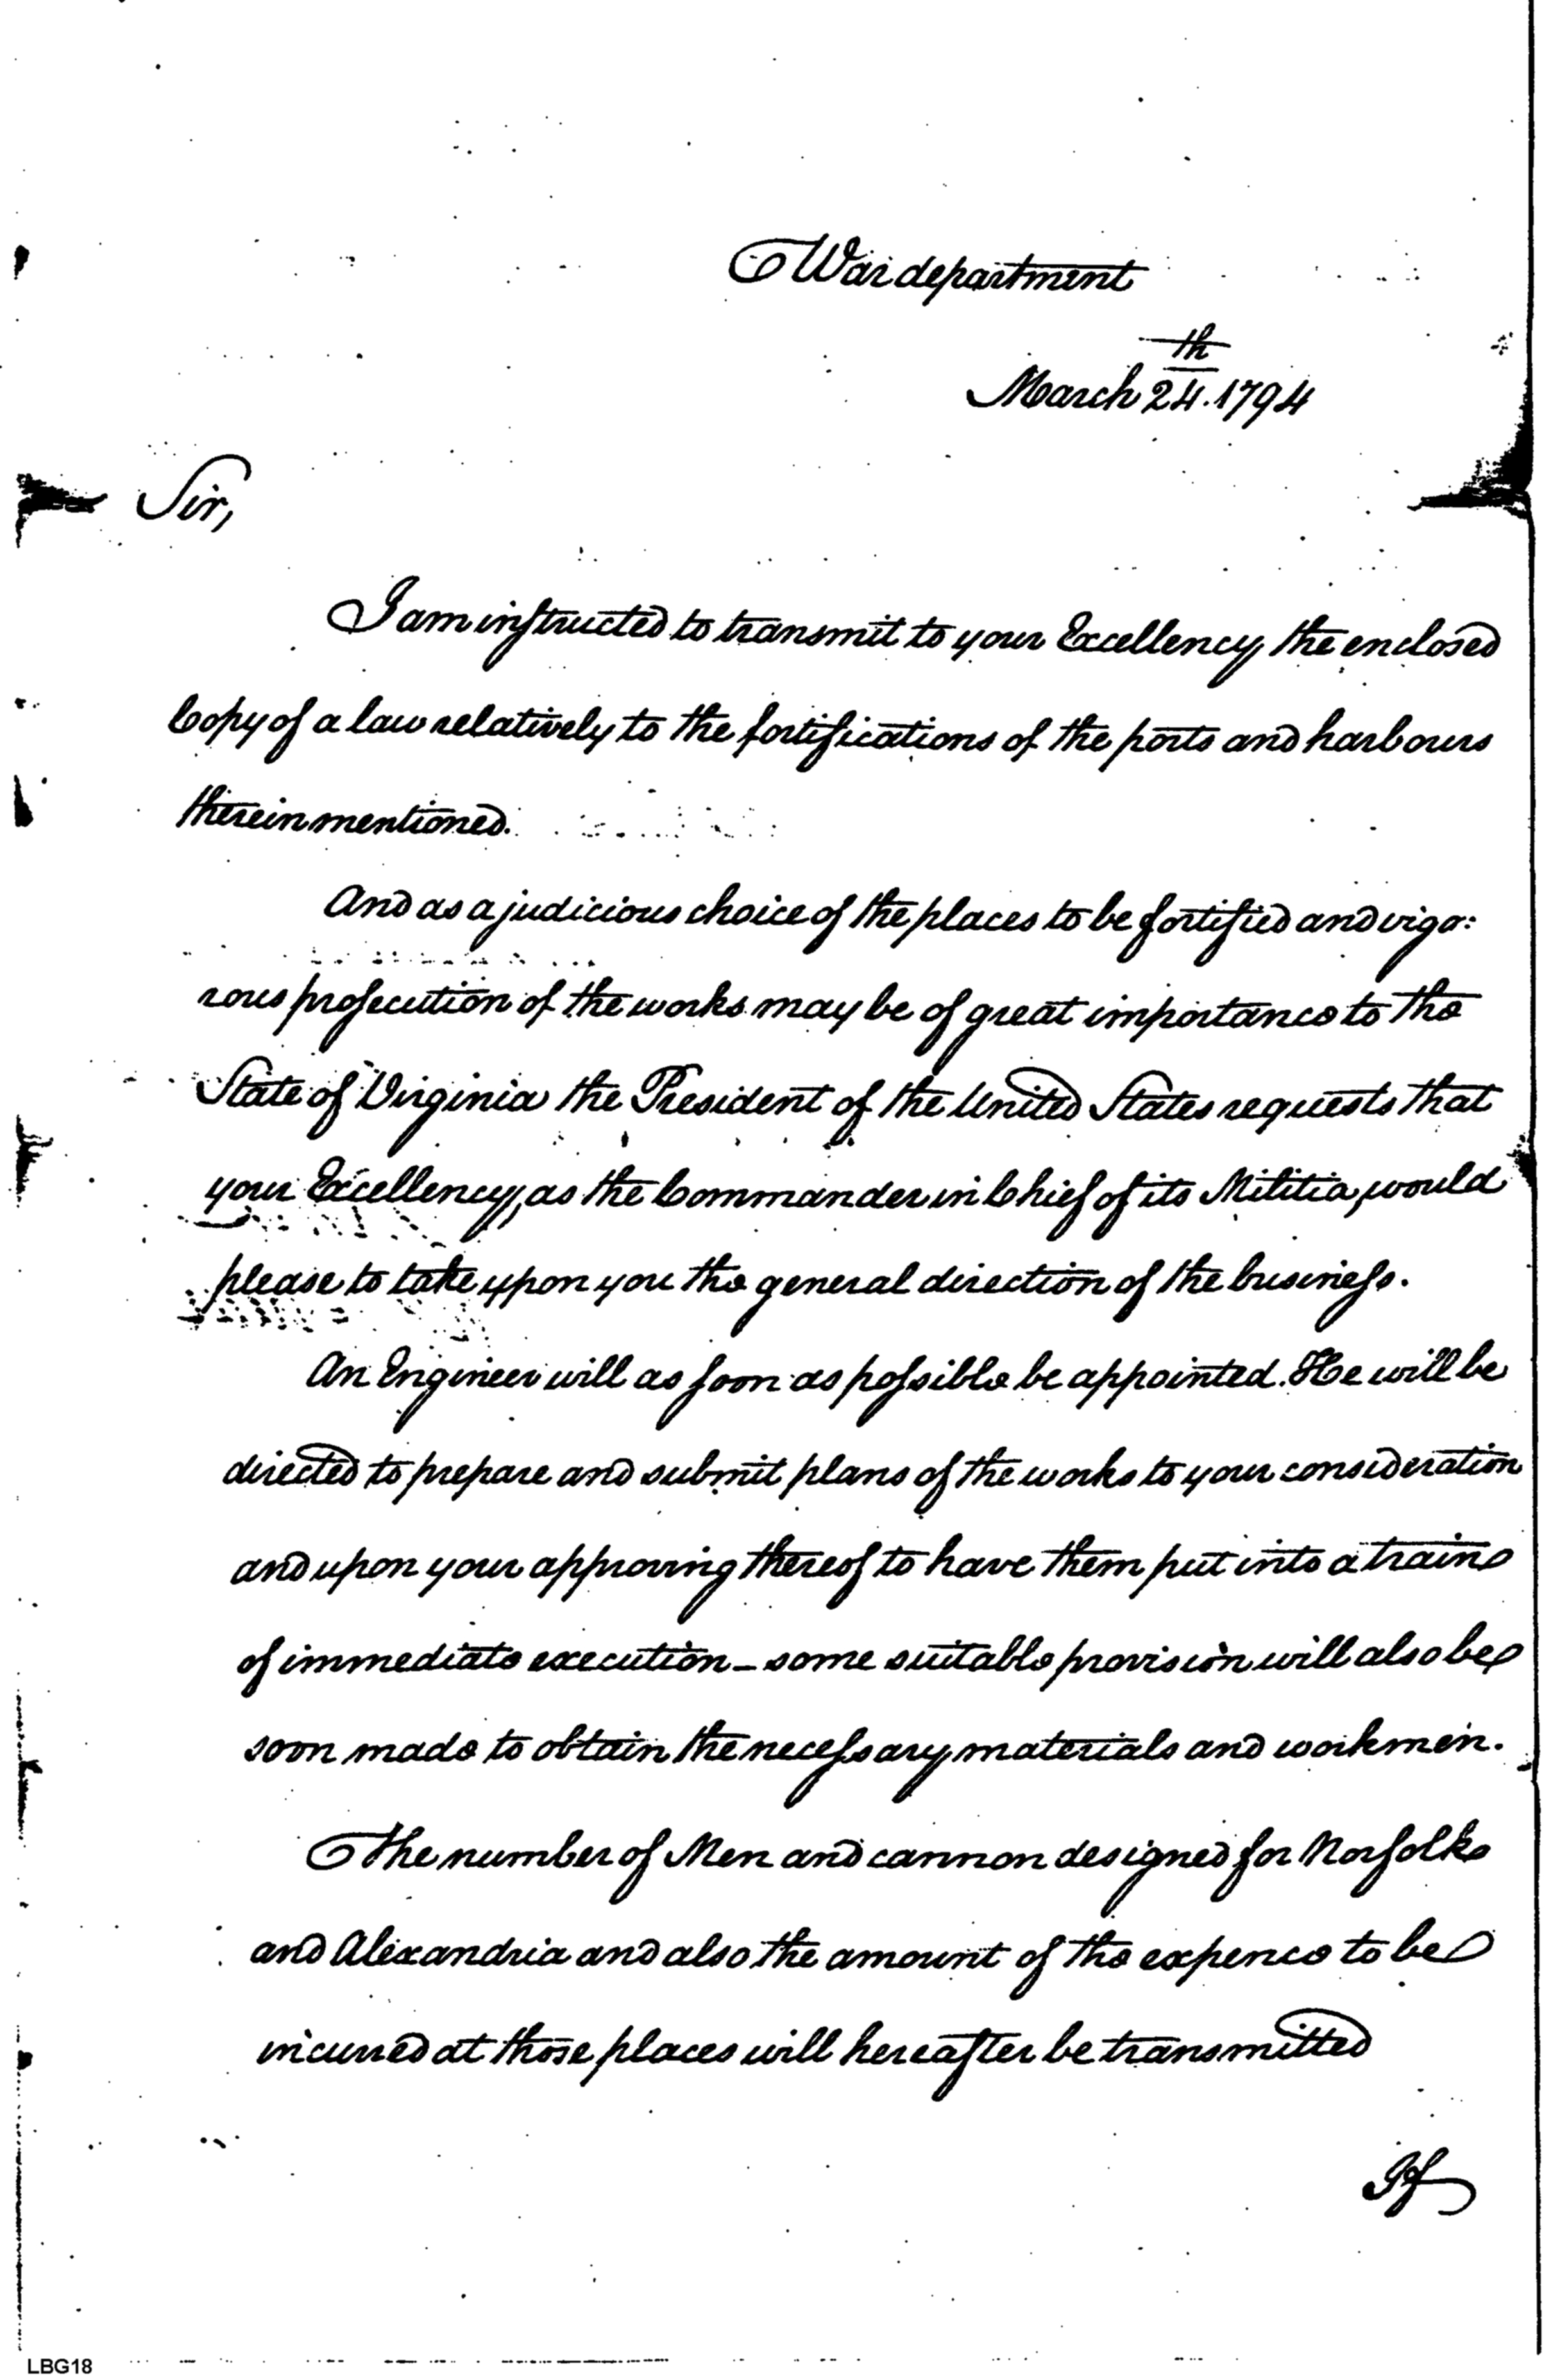 War department
March 24th. 1794
Sir,
I am instructed to transmit to your Excellency, the enclosed
Copy of a law relatively to the fortifications of the ports and harbours
therein mentioned.
And as a judicious choice of the places to be fortified and vigo:
rous prosecution of the works may be of great importance to the
State of Virginia the President of the United States requests that
your Excellency, as the Commander in Chief of its Militia, would
please to take upon you the general direction of the business.
An Engineer will as soon as possible be appointed. He will be
directed to prepare and submit plans of the works to your consideration
and upon your approving thereof to have them put into a train
of immediate execution – some suitable provision will also be
soon made to obtain the necessary materials and workmen.
The number of Men and cannon designed for Norfolk
and Alexandria and also the amount of the expence to be
incurred at those places will hereafter be transmitted
If
LBG18